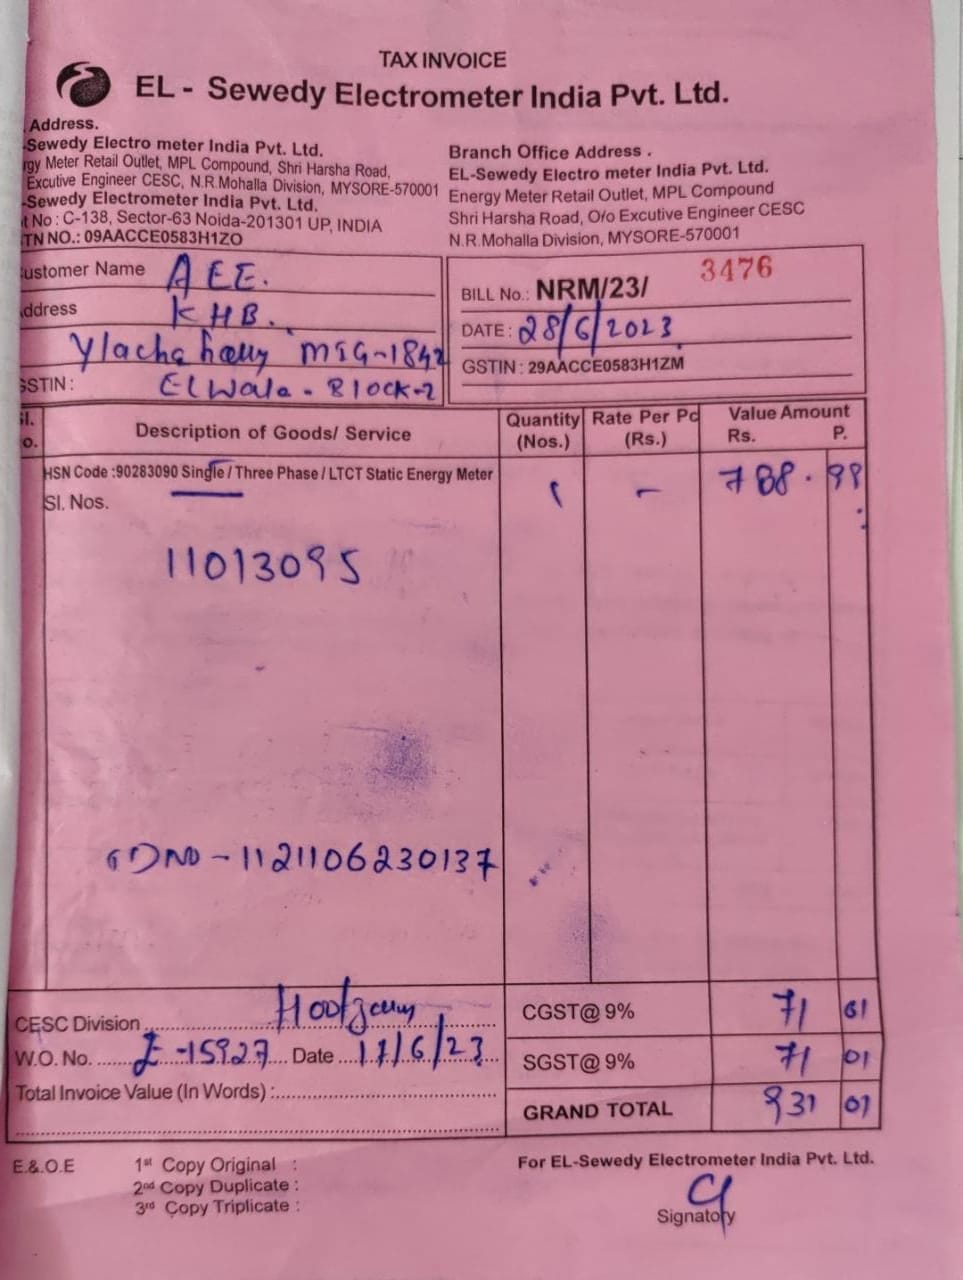 TAX INVOICE
EL - Sewedy Electrometer India Pvt. Ltd.
Address.
-Sewedy Electro meter India Pvt. Ltd.
rgy Meter Retail Outlet, MPL Compound, Shri Harsha Road,
Excutive Engineer CESC, N.R.Mohalla Division, MYSORE-570001
-Sewedy Electrometer India Pvt. Ltd.
t No : C-138, Sector-63 Noida-201301 UP, INDIA
TN NO.: 09AACCE0583H1ZO
Branch Office Address .
EL-Sewedy Electro meter India Pvt. Ltd.
Energy Meter Retail Outlet, MPL Compound
Shri Harsha Road, O/o Excutive Engineer CESC
N.R.Mohalla Division, MYSORE-570001
ustomer Name AEE.
ddress KHB.
MIG-1842
GSTIN : Elwala - Block-2
BILL No.: NRM/23/ 3476
DATE : 28/6/2023
GSTIN : 29AACCE0583H1ZM
Sl. No. Description of Goods/ Service Quantity (Nos.) Rate Per Pc (Rs.) Value Amount Rs. P.
HSN Code :90283090 Single / Three Phase / LTCT Static Energy Meter 1 - 788.98
Sl. Nos.
11013095
1121106230137
CESC Division
W.O. No. 15927 Date 17/6/23
Total Invoice Value (In Words) :
CGST@ 9% 71 01
SGST@ 9% 71 01
GRAND TOTAL 931 01
E.&.O.E
1st Copy Original :
2nd Copy Duplicate :
3rd Copy Triplicate :
For EL-Sewedy Electrometer India Pvt. Ltd.
Signatory